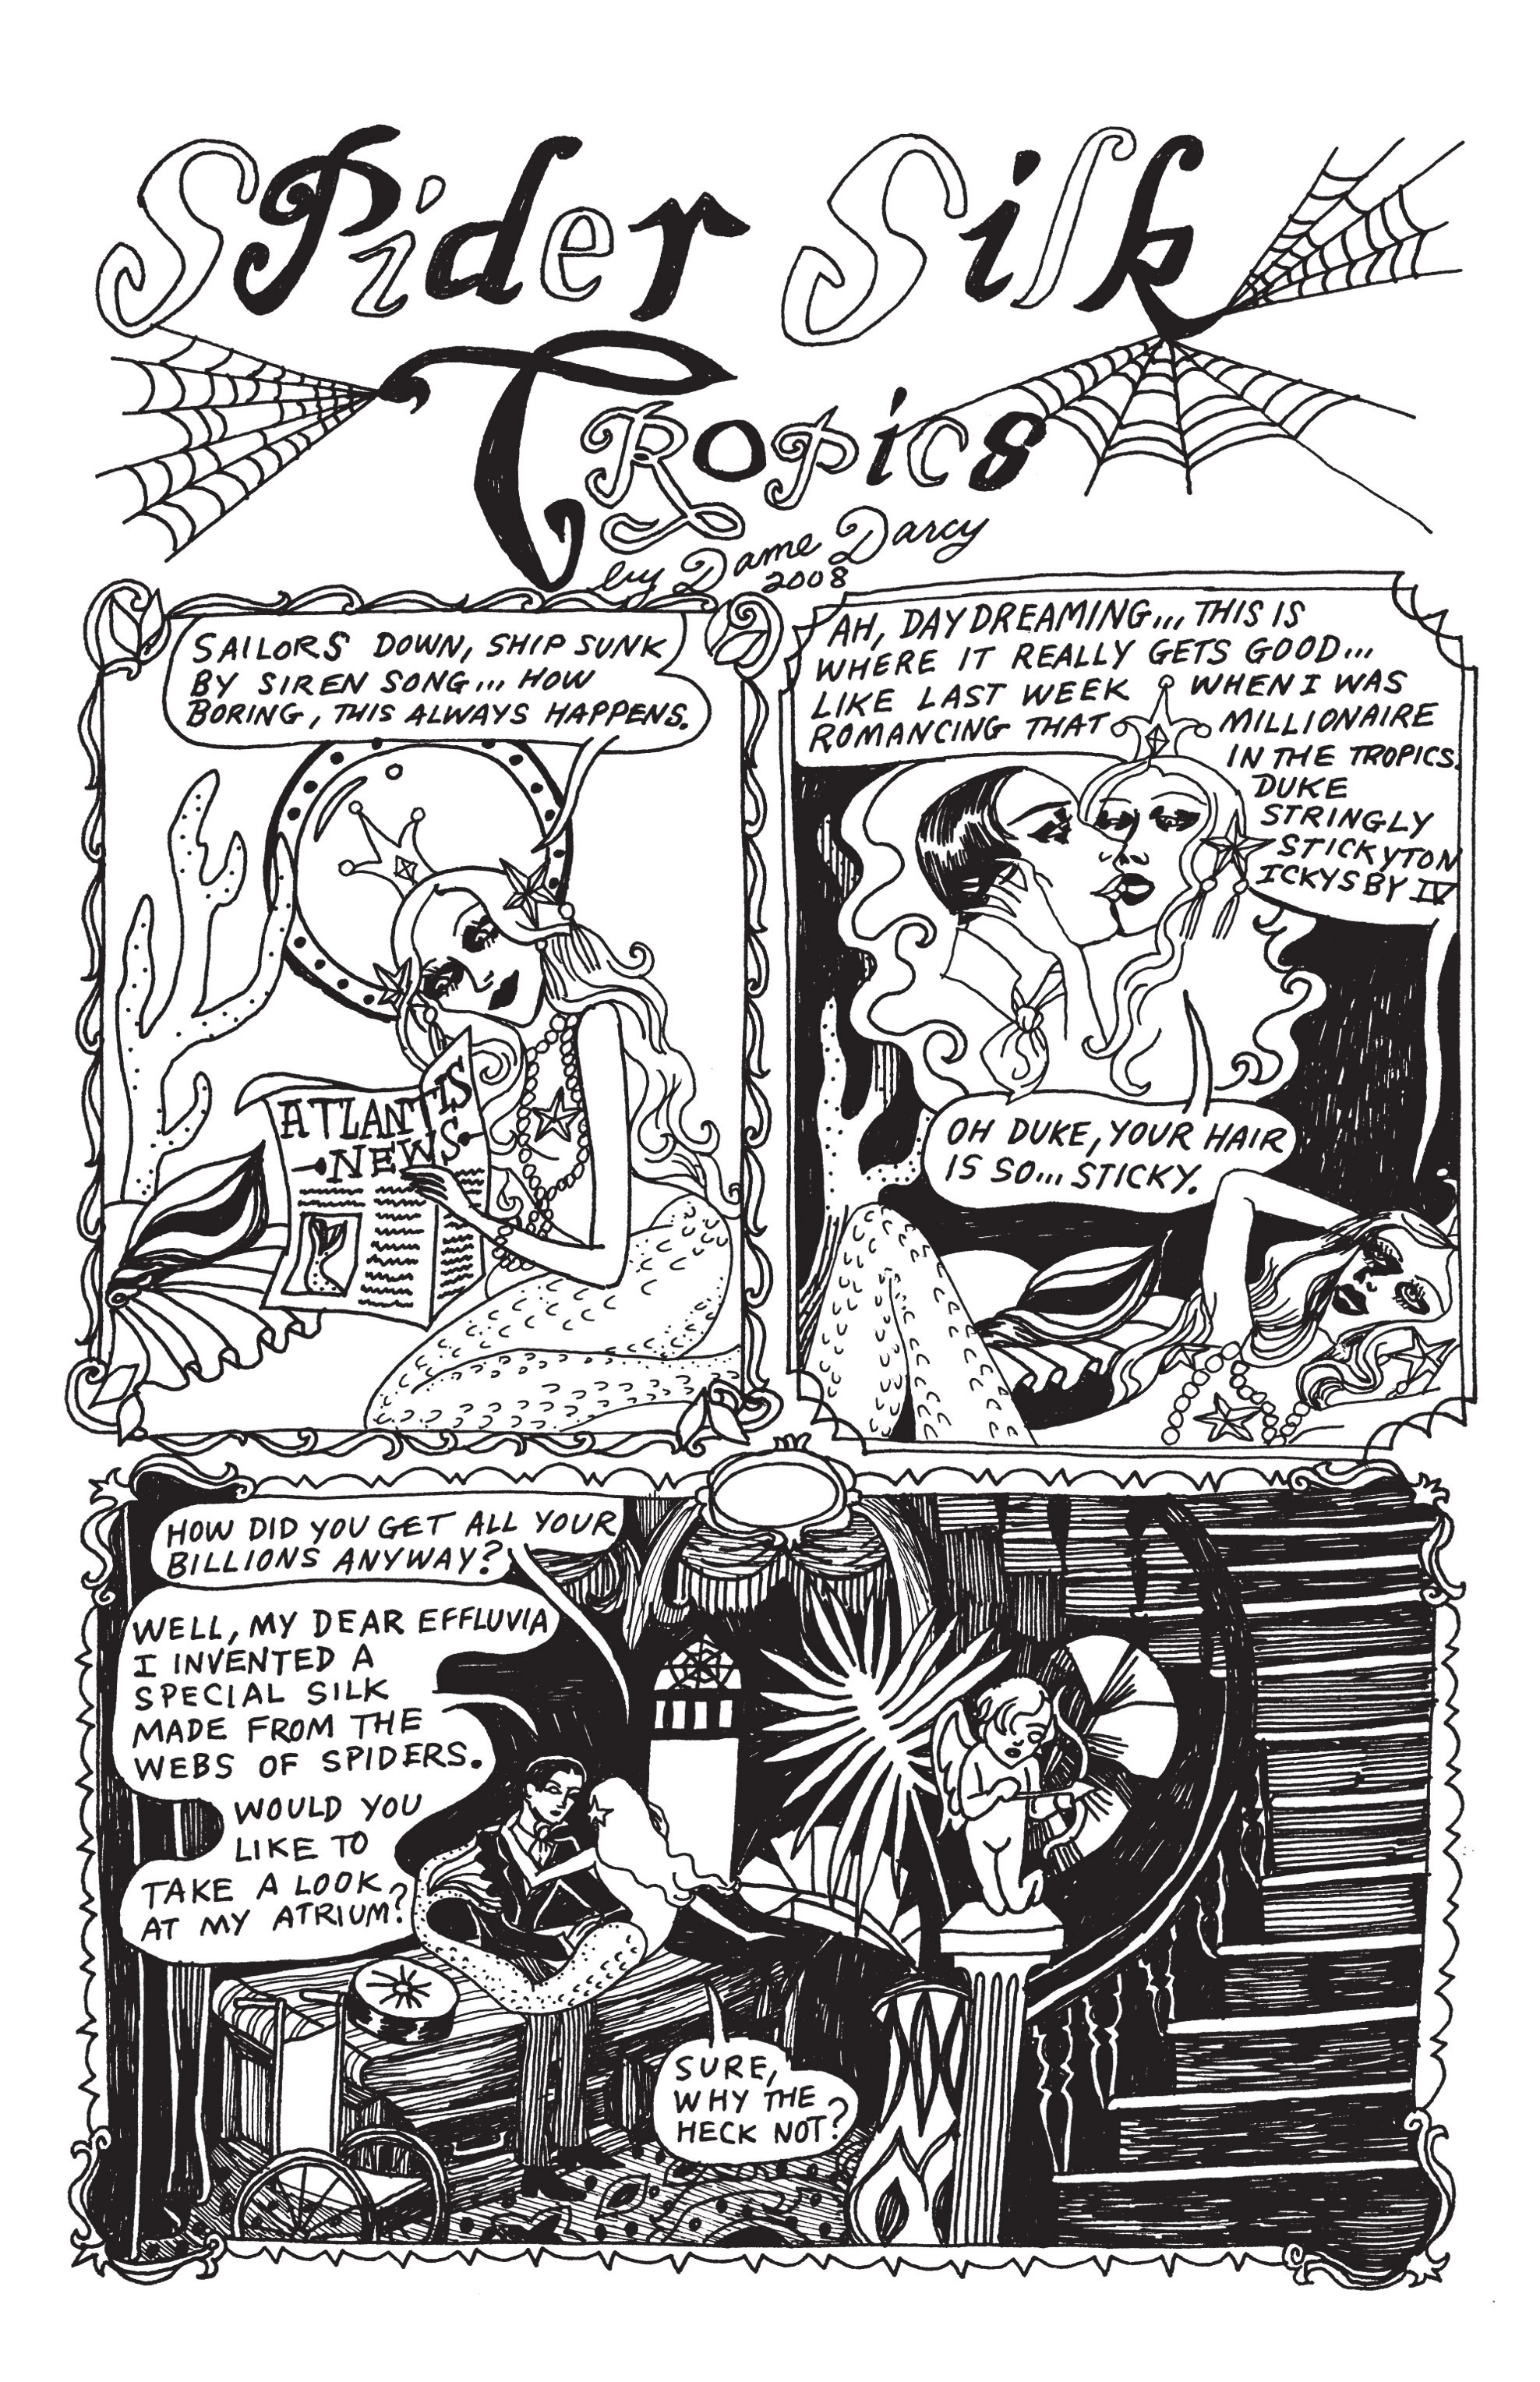 Spider Silk
Tropics
by Dame Darcy
2008
SAILORS DOWN, SHIP SUNK
BY SIREN SONG... HOW
BORING, THIS ALWAYS HAPPENS.
ATLANTIS
NEWS
AH, DAYDREAMING... THIS IS
WHERE IT REALLY GETS GOOD...
LIKE LAST WEEK WHEN I WAS
ROMANCING THAT MILLIONAIRE
IN THE TROPICS.
DUKE
STRINGLY
STICKYTON
ICKYSBY IV
OH DUKE, YOUR HAIR
IS SO... STICKY.
HOW DID YOU GET ALL YOUR
BILLIONS ANYWAY?
WELL, MY DEAR EFFLUVIA
I INVENTED A
SPECIAL SILK
MADE FROM THE
WEBS OF SPIDERS.
WOULD YOU
LIKE TO
TAKE A LOOK
AT MY ATRIUM?
SURE,
WHY THE
HECK NOT?